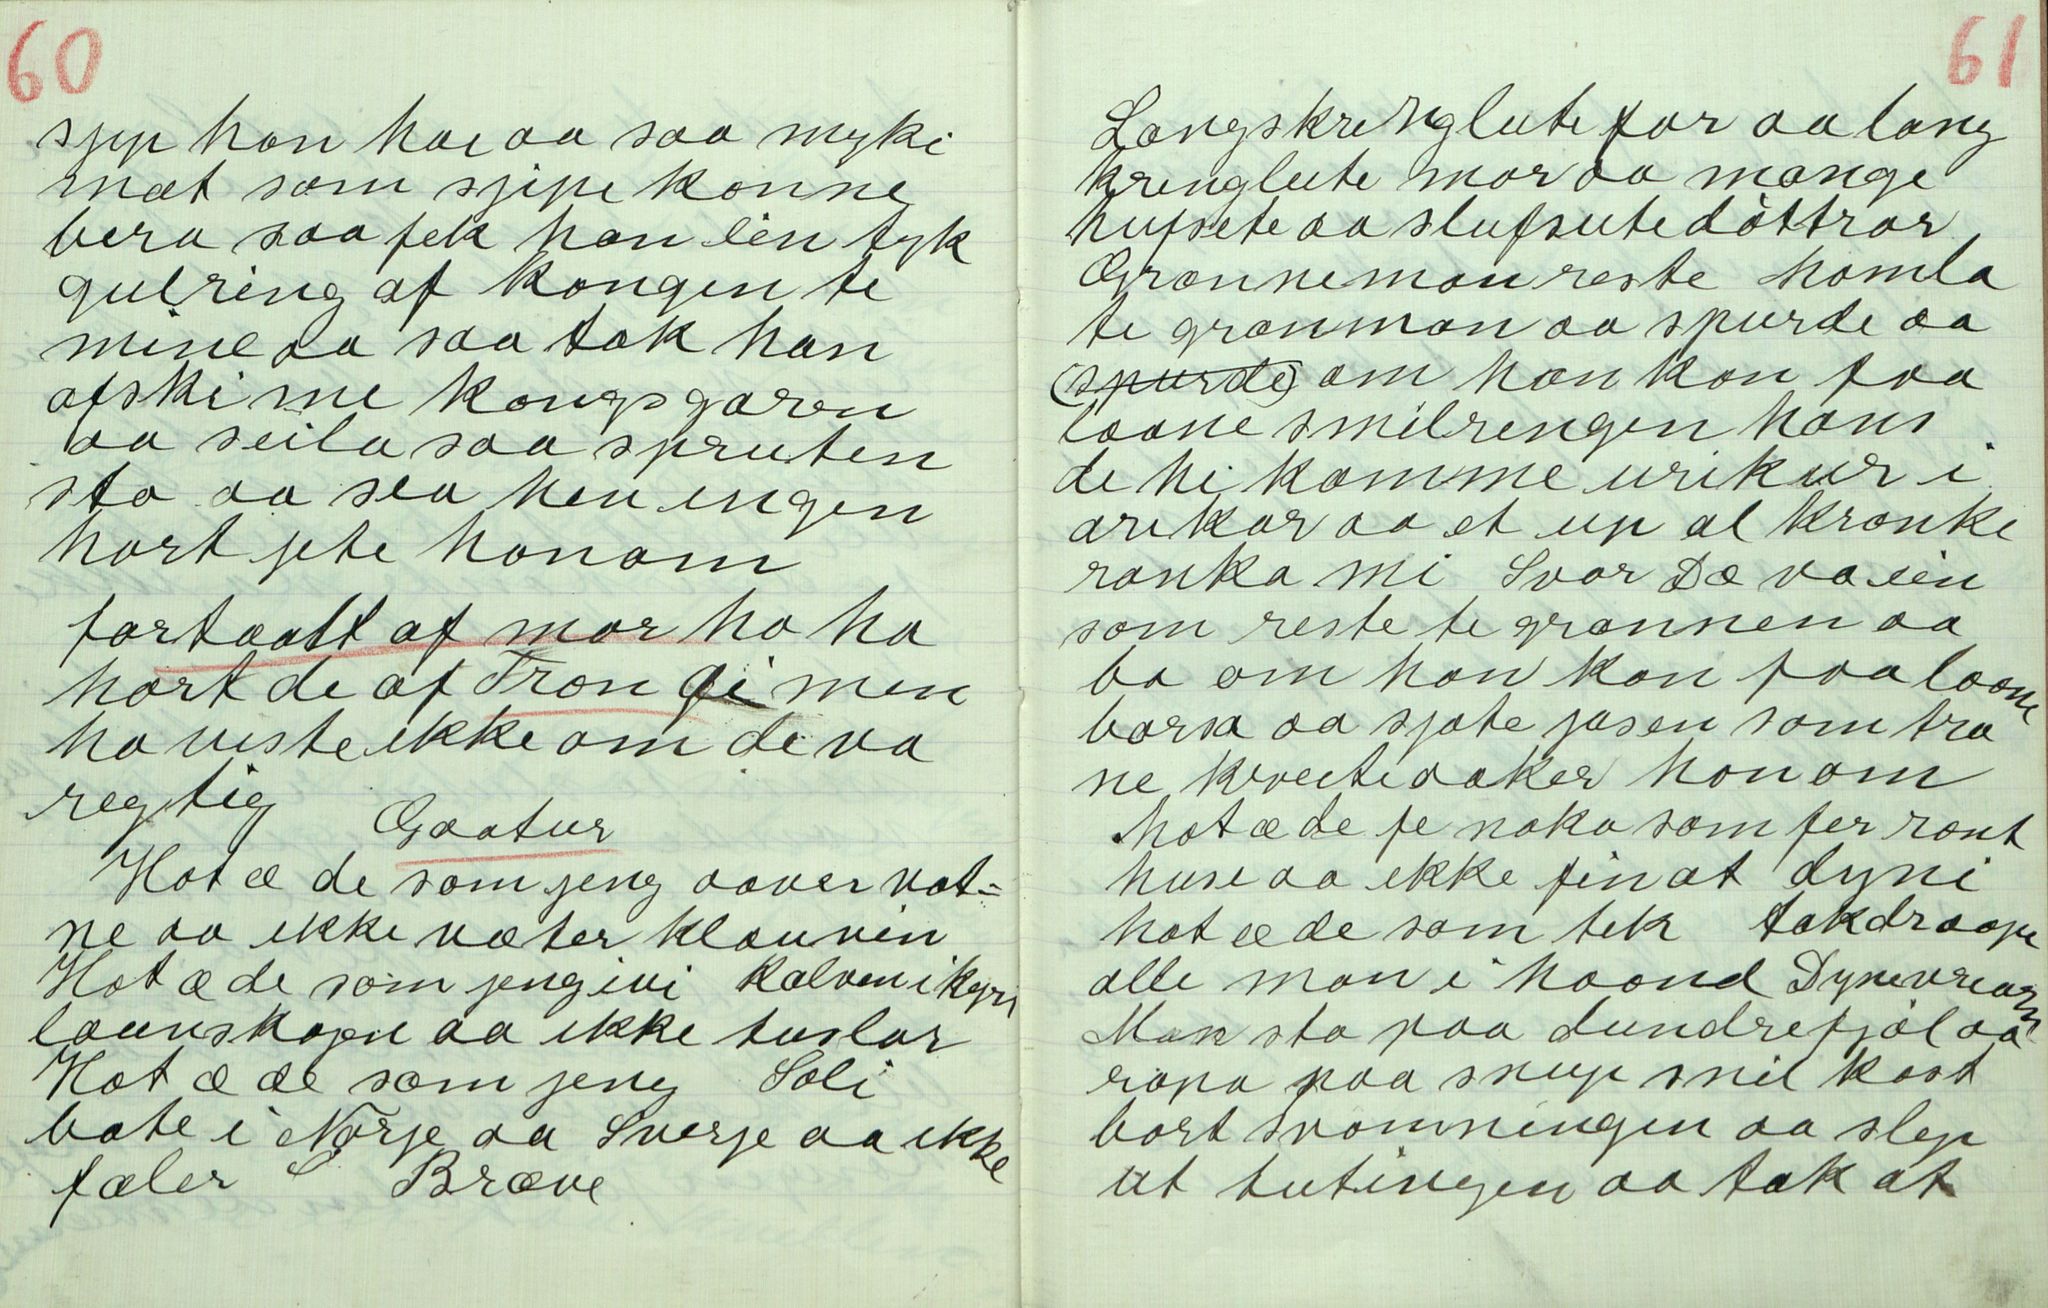 60
sjip han hae aa saa myki
mat som sjipe konne
bera saa fek han ein tyk
gulring af kongen te
mine aa saa tok han
afski me kongsgaren
aa seila saa spruten
sto aa sea hev ingen
hørt jete honom
fortaalt af mor ho ha
hørt de af Tron Gi men
ho viste ikke om de va
regtig
Gaatur
Hot æ de som jeng aaver vat=
ne aa ikke væter klauven
Hot æ de som jeng ivi kalven i kyri
launskogen aa ikke tuslar
Hot æ de som jeng Soli
bate i Norje aa Sverje aa ikke
fæler S Bræve
61
Langskrenglute far aa lang
krenglute mor aa mange
hufsete aa slufsute døttrar
Grannemon reste homla
te granmon aa spurde aa
(spurde) om han kan faa
laane smilrengen hans
de hi komme urikur i
arikar aa et up al kranke
ranka mi Svar Dæ va ein
som reste te grannen aa
ba om han kan faa laane
børsa aa sjøte jasen som tra
ne kveiteaaker honom
hot æ de fe noka som fer ront
huse aa ikke fin at dyni
hot æ de som tek takdraape
alle man i haand Dynevrearn
Man sto paa dundrefjøl aa
ropa paa snup snil kast
bort svømningen aa slep
ut tutingen aa tak at